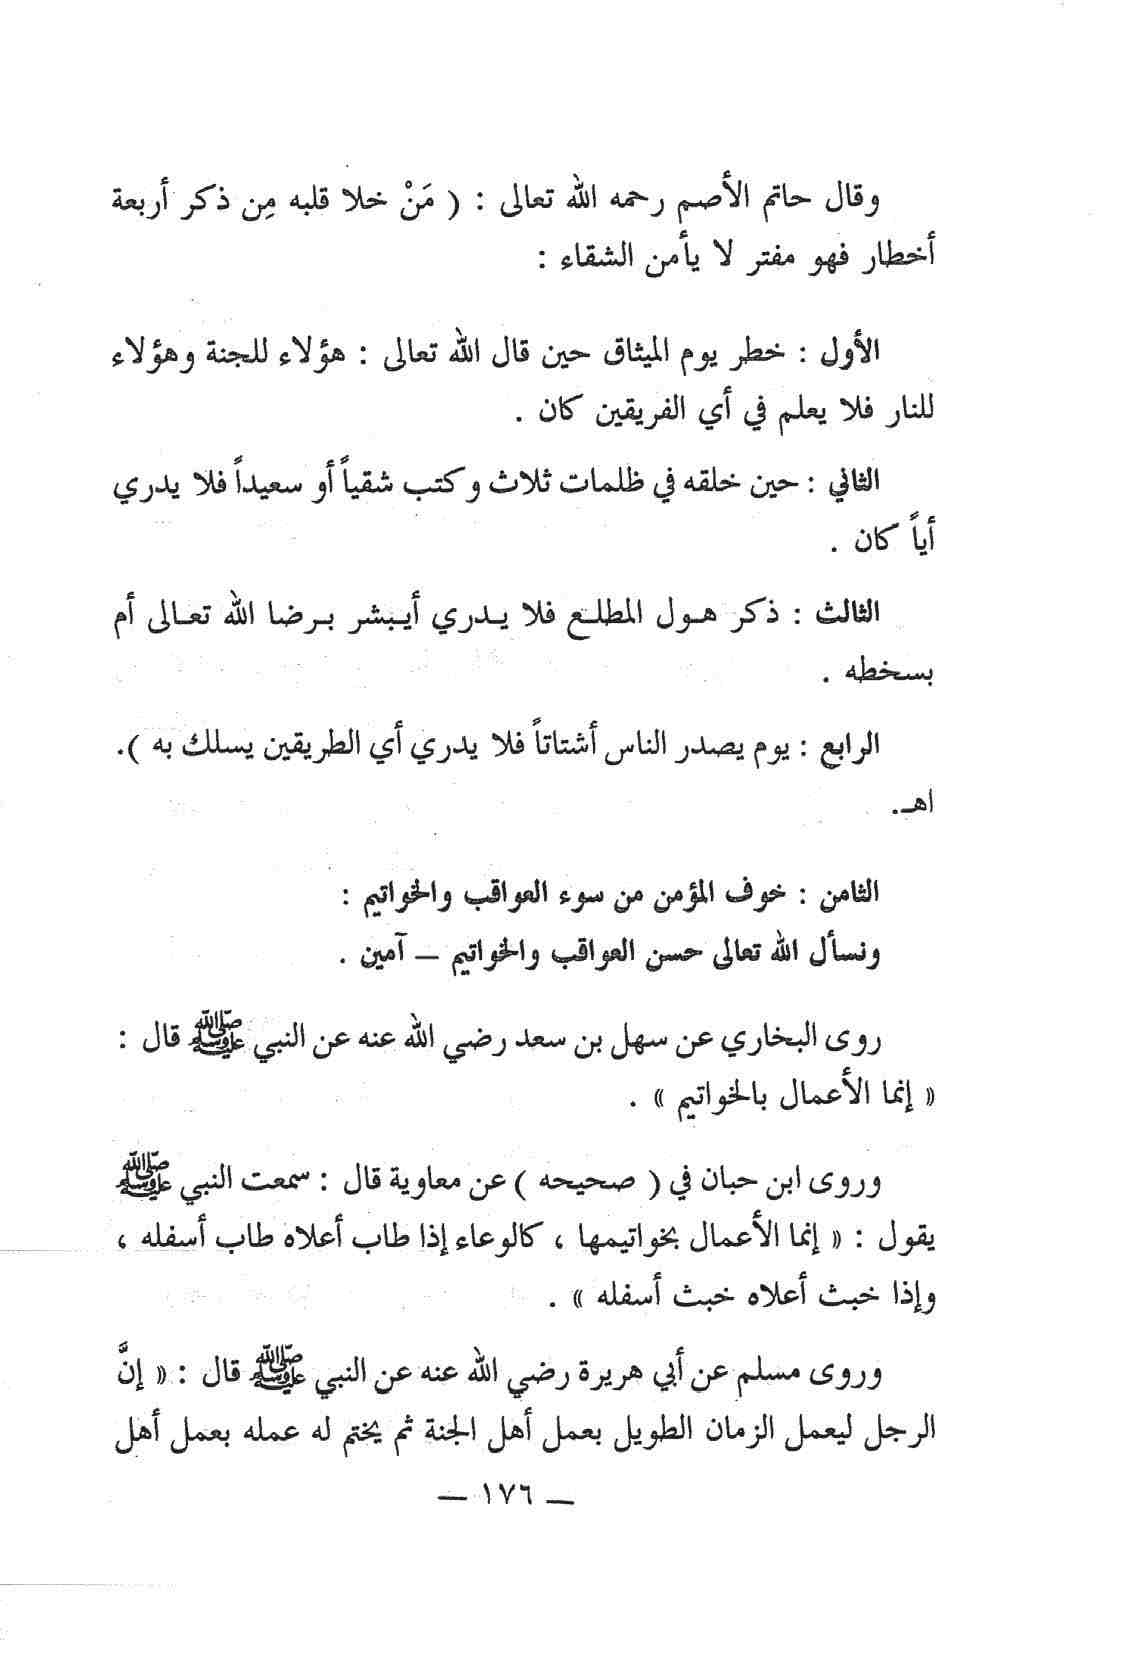 وقال حاتم الأصم رحمه الله تعالى : ( مَنْ خلا قلبه مِن ذكر أربعة
أخطار فهو مفتر لا يأمن الشقاء :
الأول : خطر يوم الميثاق حين قال الله تعالى : هؤلاء للجنة وهؤلاء
للنار فلا يعلم في أي الفريقين كان .
الثاني : حين خلقه في ظلمات ثلاث وكتب شقياً أو سعيداً فلا يدري
أياً كان .
الثالث : ذكر هـول المطلـع فلا يـدري أيـبشر بـرضا الله تعـالى أم
بسخطه .
الرابع : يوم يصدر الناس أشتاتاً فلا يدري أي الطريقين يسلك به ).
اهـ.
الثامن : خوف المؤمن من سوء العواقب والخواتيم :
ونسأل الله تعالى حسن العواقب والخواتيم – آمين .
روى البخاري عن سهل بن سعد رضي الله عنه عن النبي ﷺ قال :
« إنما الأعمال بالخواتيم » .
وروى ابن حبان في ( صحيحه ) عن معاوية قال : سمعت النبي ﷺ
يقول : « إنما الأعمال بخواتيمها ، كالوعاء إذا طاب أعلاه طاب أسفله ،
وإذا خبث أعلاه خبث أسفله » .
وروى مسلم عن أبي هريرة رضي الله عنه عن النبي ﷺ قال : « إنَّ
الرجل ليعمل الزمان الطويل بعمل أهل الجنة ثم يختم له عمله بعمل أهل
— ١٧٦ —